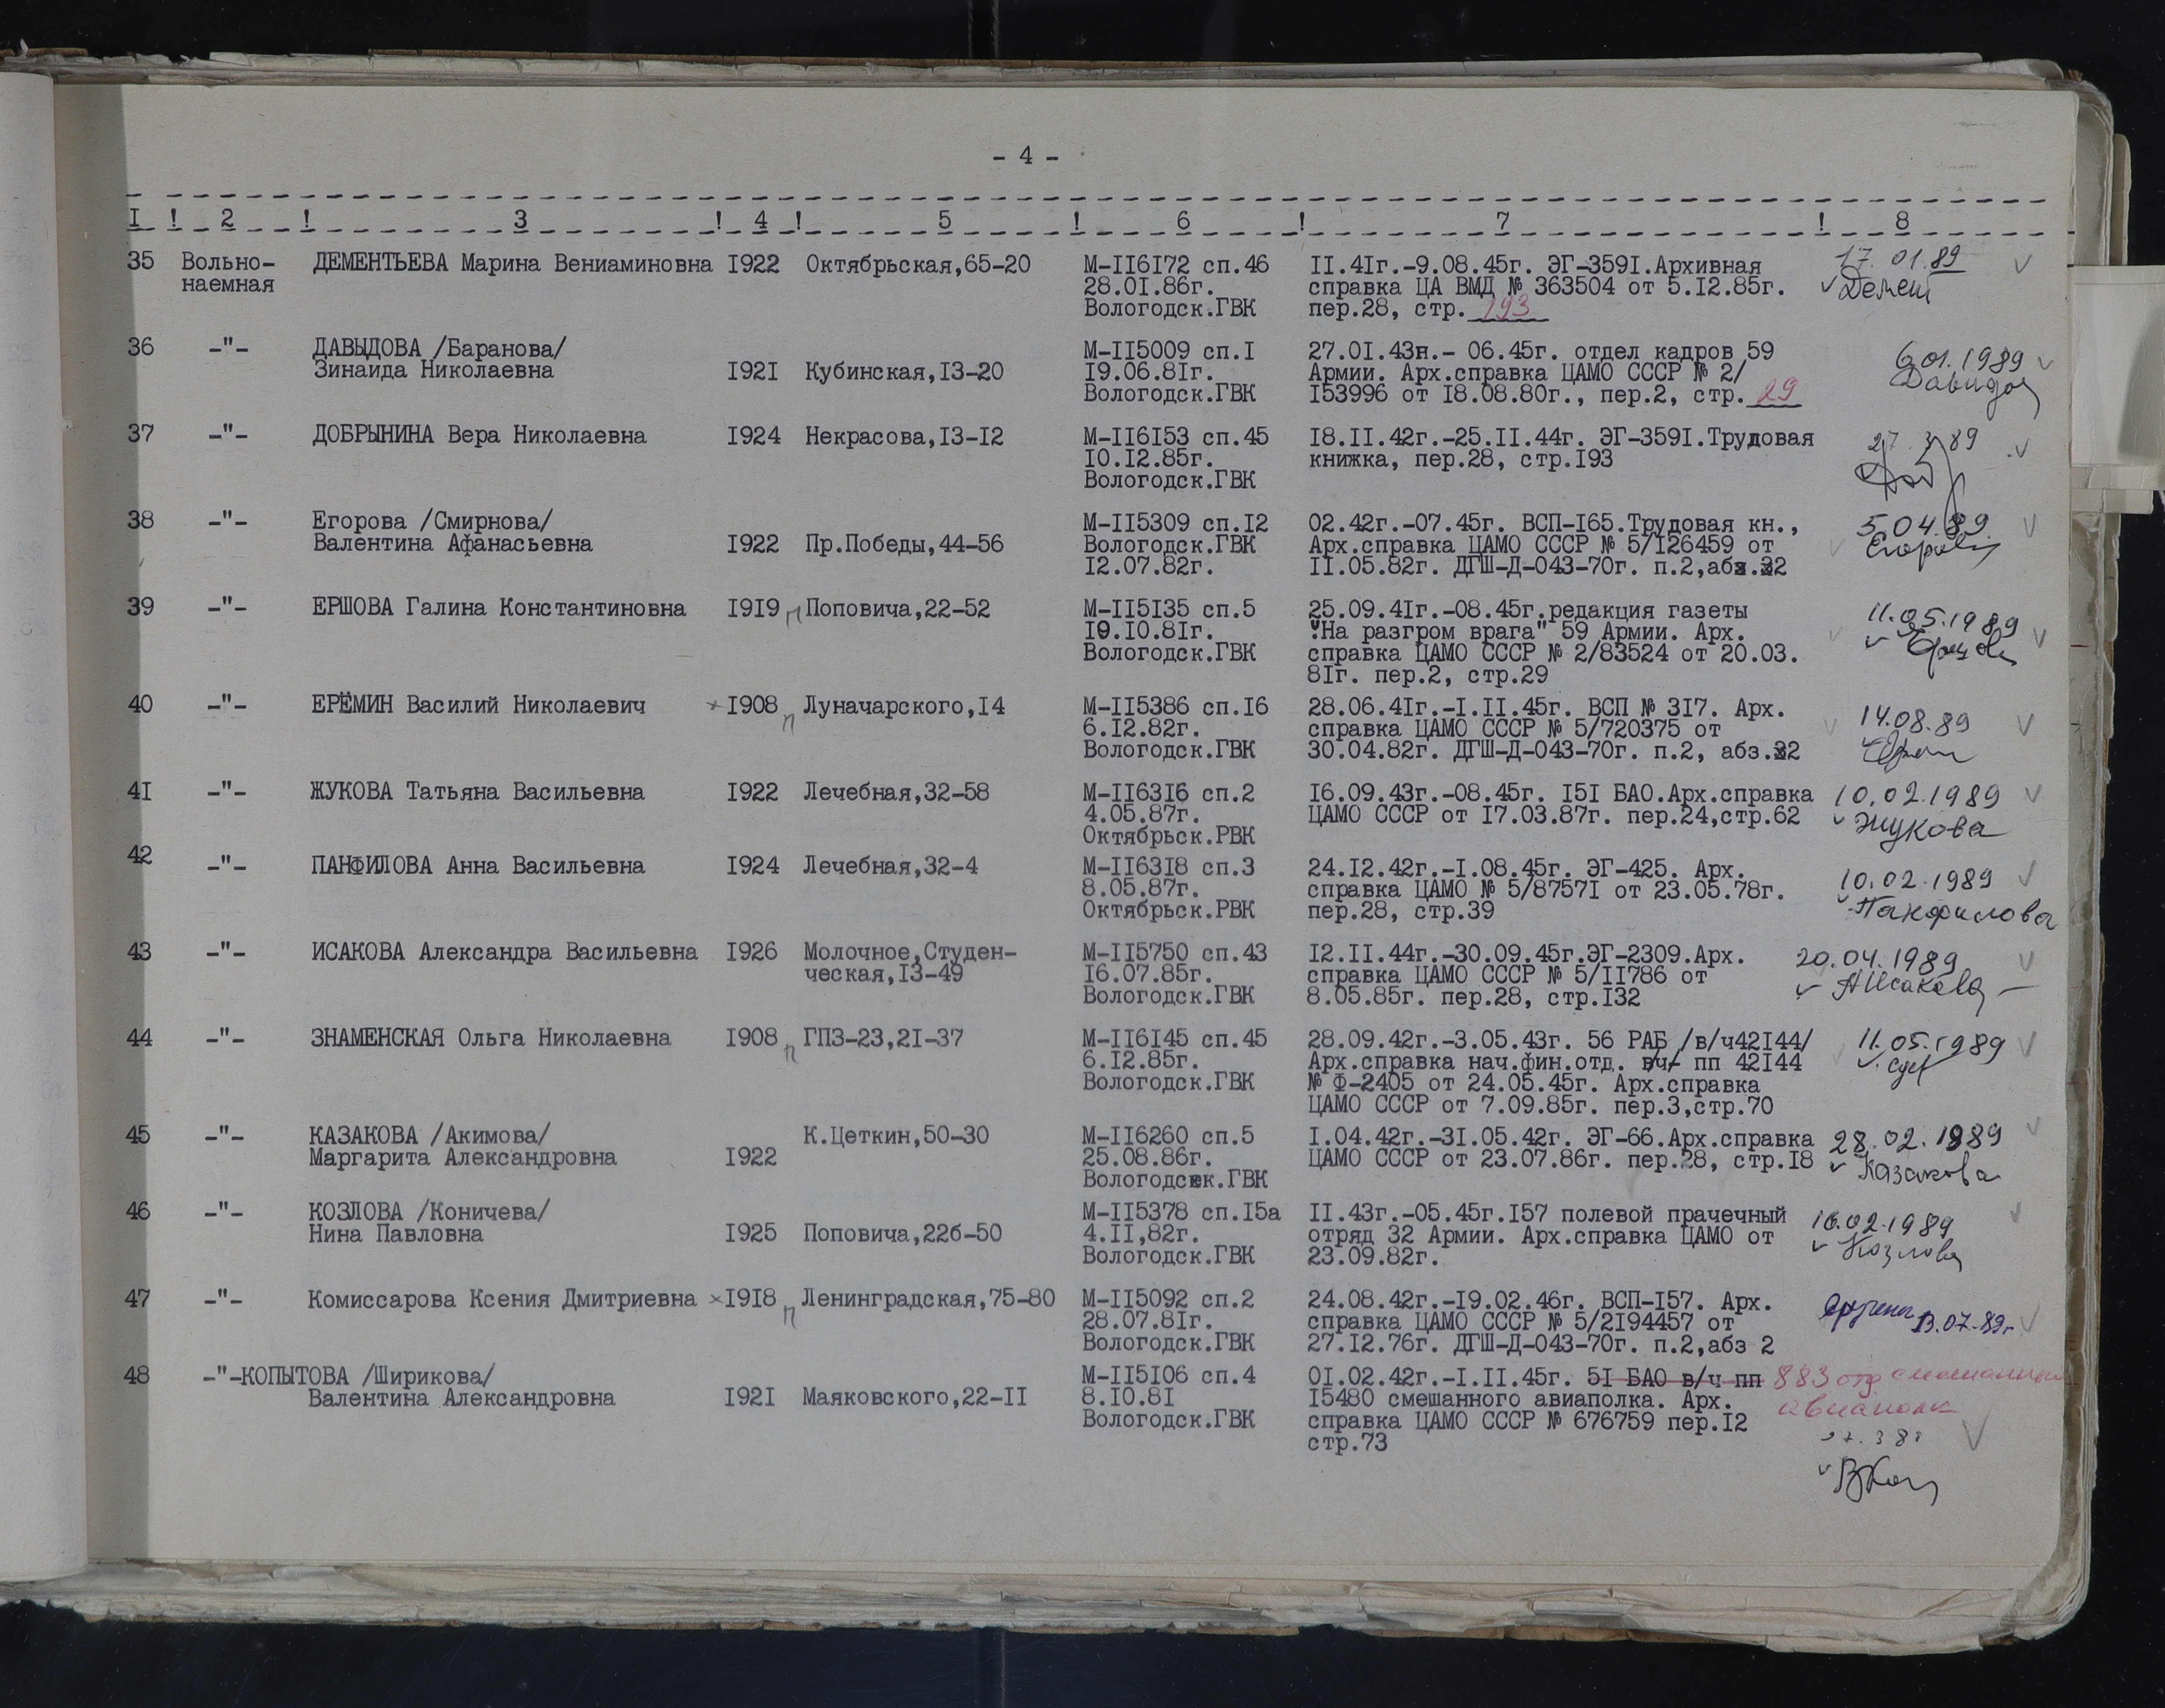 - 4 -
I ! 2 ! 3 ! 4 ! 5 ! 6 ! 7 ! 8
35 Вольно- ДЕМЕНТЬЕВА Марина Вениаминовна I922 Октябрьская,65-20 М-II6I72 сп.46 II.4Iг.-9.08.45г. ЭГ-359I.Архивная 17.01.89
наемная 28.0I.86г. справка ЦА ВМД № 363504 от 5.I2.85г. Демент
Вологодск.ГВК пер.28, стр. 193
36 -"- ДАВЫДОВА /Баранова/ М-II5009 сп.I 27.0I.43н.- 06.45г. отдел кадров 59 6.01.1989
Зинаида Николаевна I92I Кубинская,I3-20 I9.06.8Iг. Армии. Арх.справка ЦАМО СССР № 2/ Давыдов
Вологодск.ГВК I53996 от I8.08.80г., пер.2, стр. 29
37 -"- ДОБРЫНИНА Вера Николаевна I924 Некрасова,I3-I2 М-II6I53 сп.45 I8.II.42г.-25.II.44г. ЭГ-359I.Трудовая 27.3.89
I0.I2.85г. книжка, пер.28, стр.I93
Вологодск.ГВК
38 -"- Егорова /Смирнова/ М-II5309 сп.I2 02.42г.-07.45г. ВСП-I65.Трудовая кн., 5.04.89.
Валентина Афанасьевна I922 Пр.Победы,44-56 Вологодск.ГВК Арх.справка ЦАМО СССР № 5/I26459 от
I2.07.82г. II.05.82г. ДГШ-Д-043-70г. п.2,абз.2
39 -"- ЕРШОВА Галина Константиновна I9I9 п Поповича,22-52 М-II5I35 сп.5 25.09.4Iг.-08.45г.редакция газеты 11.05.1989
I9.I0.8Iг. "На разгром врага" 59 Армии. Арх.
Вологодск.ГВК справка ЦАМО СССР № 2/83524 от 20.03.
8Iг. пер.2, стр.29
40 -"- ЕРЁМИН Василий Николаевич I908 п Луначарского,I4 М-II5386 сп.I6 28.06.4Iг.-I.II.45г. ВСП № 3I7. Арх. 14.08.89
6.I2.82г. справка ЦАМО СССР № 5/720375 от
Вологодск.ГВК 30.04.82г. ДГШ-Д-043-70г. п.2, абз.2
4I -"- ЖУКОВА Татьяна Васильевна I922 Лечебная,32-58 М-II63I6 сп.2 I6.09.43г.-08.45г. I5I БАО.Арх.справка 10.02.1989
4.05.87г. ЦАМО СССР от I7.03.87г. пер.24,стр.62 Жукова
Октябрьск.РВК
42 -"- ПАНФИЛОВА Анна Васильевна I924 Лечебная,32-4 М-II63I8 сп.3 24.I2.42г.-I.08.45г. ЭГ-425. Арх. 10.02.1989
8.05.87г. справка ЦАМО № 5/8757I от 23.05.78г. Панфилова
Октябрьск.РВК пер.28, стр.39
43 -"- ИСАКОВА Александра Васильевна I926 Молочное,Студен- М-II5750 сп.43 I2.II.44г.-30.09.45г.ЭГ-2309.Арх. 20.04.1989
ческая,I3-49 I6.07.85г. справка ЦАМО СССР № 5/II786 от АИсакова
Вологодск.ГВК 8.05.85г. пер.28, стр.I32
44 -"- ЗНАМЕНСКАЯ Ольга Николаевна I908 п ГПЗ-23,2I-37 М-II6I45 сп.45 28.09.42г.-3.05.43г. 56 РАБ /в/ч42I44/ 11.05.1989
6.I2.85г. Арх.справка нач.фин.отд. в/ч пп 42I44
Вологодск.ГВК № Ф-2405 от 24.05.45г. Арх.справка
ЦАМО СССР от 7.09.85г. пер.3,стр.70
45 -"- КАЗАКОВА /Акимова/ К.Цеткин,50-30 М-II6260 сп.5 I.04.42г.-3I.05.42г. ЭГ-66.Арх.справка 28.02.1989
Маргарита Александровна I922 25.08.86г. ЦАМО СССР от 23.07.86г. пер.28, стр.I8 Казакова
Вологодск.ГВК
46 -"- КОЗЛОВА /Коничева/ М-II5378 сп.I5а II.43г.-05.45г.I57 полевой прачечный 16.02.1989
Нина Павловна I925 Поповича,22б-50 4.II,82г. отряд 32 Армии. Арх.справка ЦАМО от Козлова
Вологодск.ГВК 23.09.82г.
47 -"- Комиссарова Ксения Дмитриевна I9I8 п Ленинградская,75-80 М-II5092 сп.2 24.08.42г.-I9.02.46г. ВСП-I57. Арх. 13.07.89г
28.07.8Iг. справка ЦАМО СССР № 5/2I94457 от
Вологодск.ГВК 27.I2.76г. ДГШ-Д-043-70г. п.2,абз 2
48 -"-КОПЫТОВА /Ширикова/ М-II5I06 сп.4 0I.02.42г.-I.II.45г. 5I БАО в/ч пп 883 отд смешанный
Валентина Александровна I92I Маяковского,22-II 8.I0.8I I5480 смешанного авиаполка. Арх. авиаполк
Вологодск.ГВК справка ЦАМО СССР № 676759 пер.I2
стр.73
ВКоп